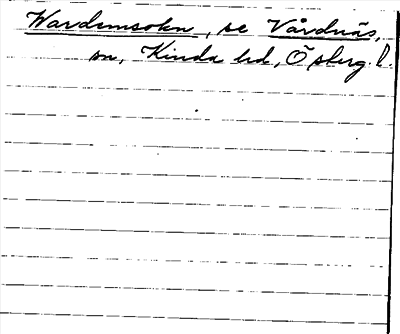 Wardumsokn, se Vårdnäs,
sn, Kinda hd, Österg. l.